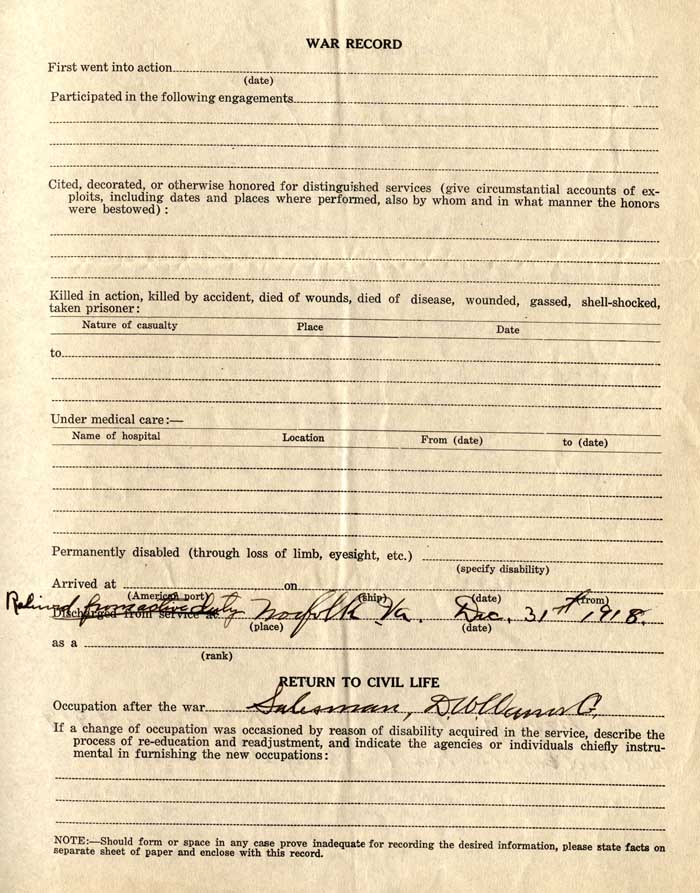 WAR RECORD
First went into action
(date)
Participated in the following engagements
Cited, decorated, or otherwise honored for distinguished services (give circumstantial accounts of ex-
ploits, including dates and places where performed, also by whom and in what manner the honors
were bestowed) :
Killed in action, killed by accident, died of wounds, died of disease, wounded, gassed, shell-shocked,
taken prisoner:
Nature of casualty Place Date
to
Under medical care:—
Name of hospital Location From (date) to (date)
Permanently disabled (through loss of limb, eyesight, etc.)
(specify disability)
Arrived at on
(American port) (ship) (date) (from)
from active duty Norfolk Va. Dec. 31st 1918.
Discharged from service at
(place) (date)
as a
(rank)
RETURN TO CIVIL LIFE
Occupation after the war Salesman,
If a change of occupation was occasioned by reason of disability acquired in the service, describe the
process of re-education and readjustment, and indicate the agencies or individuals chiefly instru-
mental in furnishing the new occupations:
NOTE:—Should form or space in any case prove inadequate for recording the desired information, please state facts on
separate sheet of paper and enclose with this record.